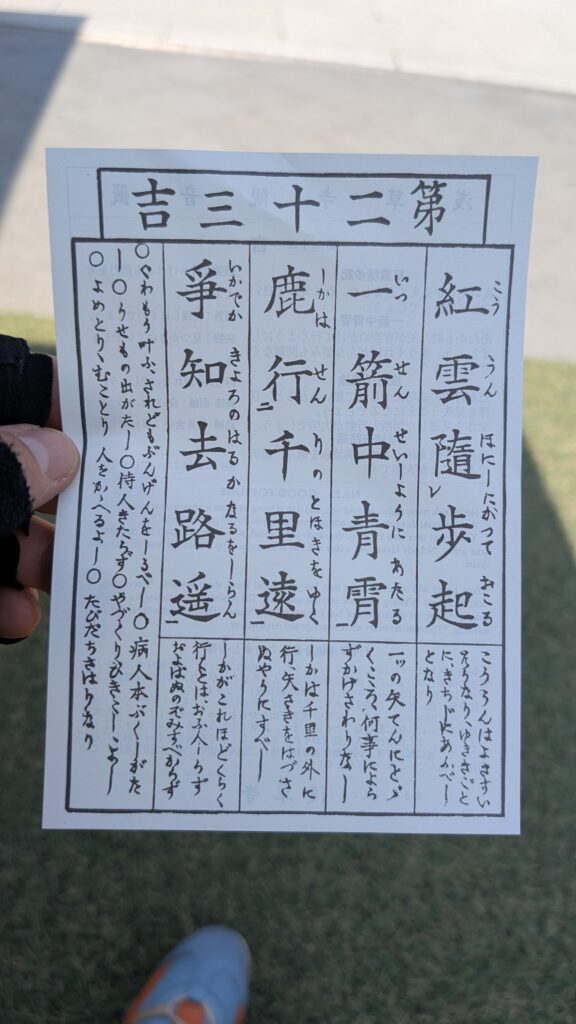 第二十三吉
紅雲隨歩起
こううん ほにしたがつて おこる
一箭中青霄
いつせん せいしように あたる
鹿行千里遠
しかは せんりの とほきを ゆく
爭知去路遥
いかでか きよろのはるかなるをしらん
こううんはよきずい
に、きちじにあふべし
となり
一ツの矢てんにとゞ
くこころ、何事によら
ずかけさわりなし
しかは千里の外に
行、矢さきをはづさ
ぬやうにすべし
しかがこれほど
行とはおふ人しらず
およばぬのぞみすべからず
○ぐわもう叶ふ、されどもぶんげんをしるべし○ 病人本ぶくしがた
し○うせもの出がたし○待人きたらず○やづくりひきこしよし
○よめとりむことり 人をかゝへるよし○ たびだちさはりなし